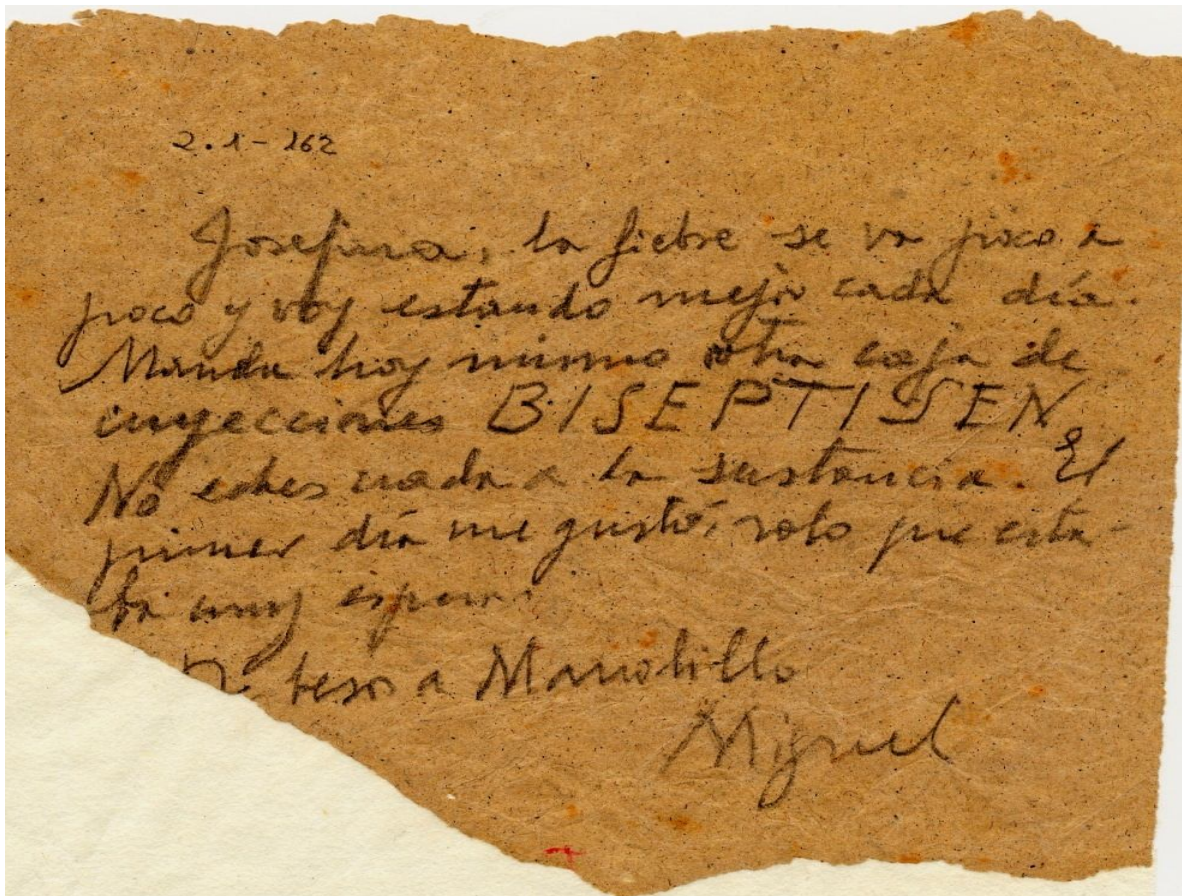 2.1-162
Josefina, la fiebre se va poco a
poco y voy estando mejor cada día.
Manda hoy mismo otra caja de
inyecciones BISEPTISEN.
No eches nada a la sustancia. El
primer día me gustó, solo que esta-
ba muy espesa.
beso a Manolillo
Miguel